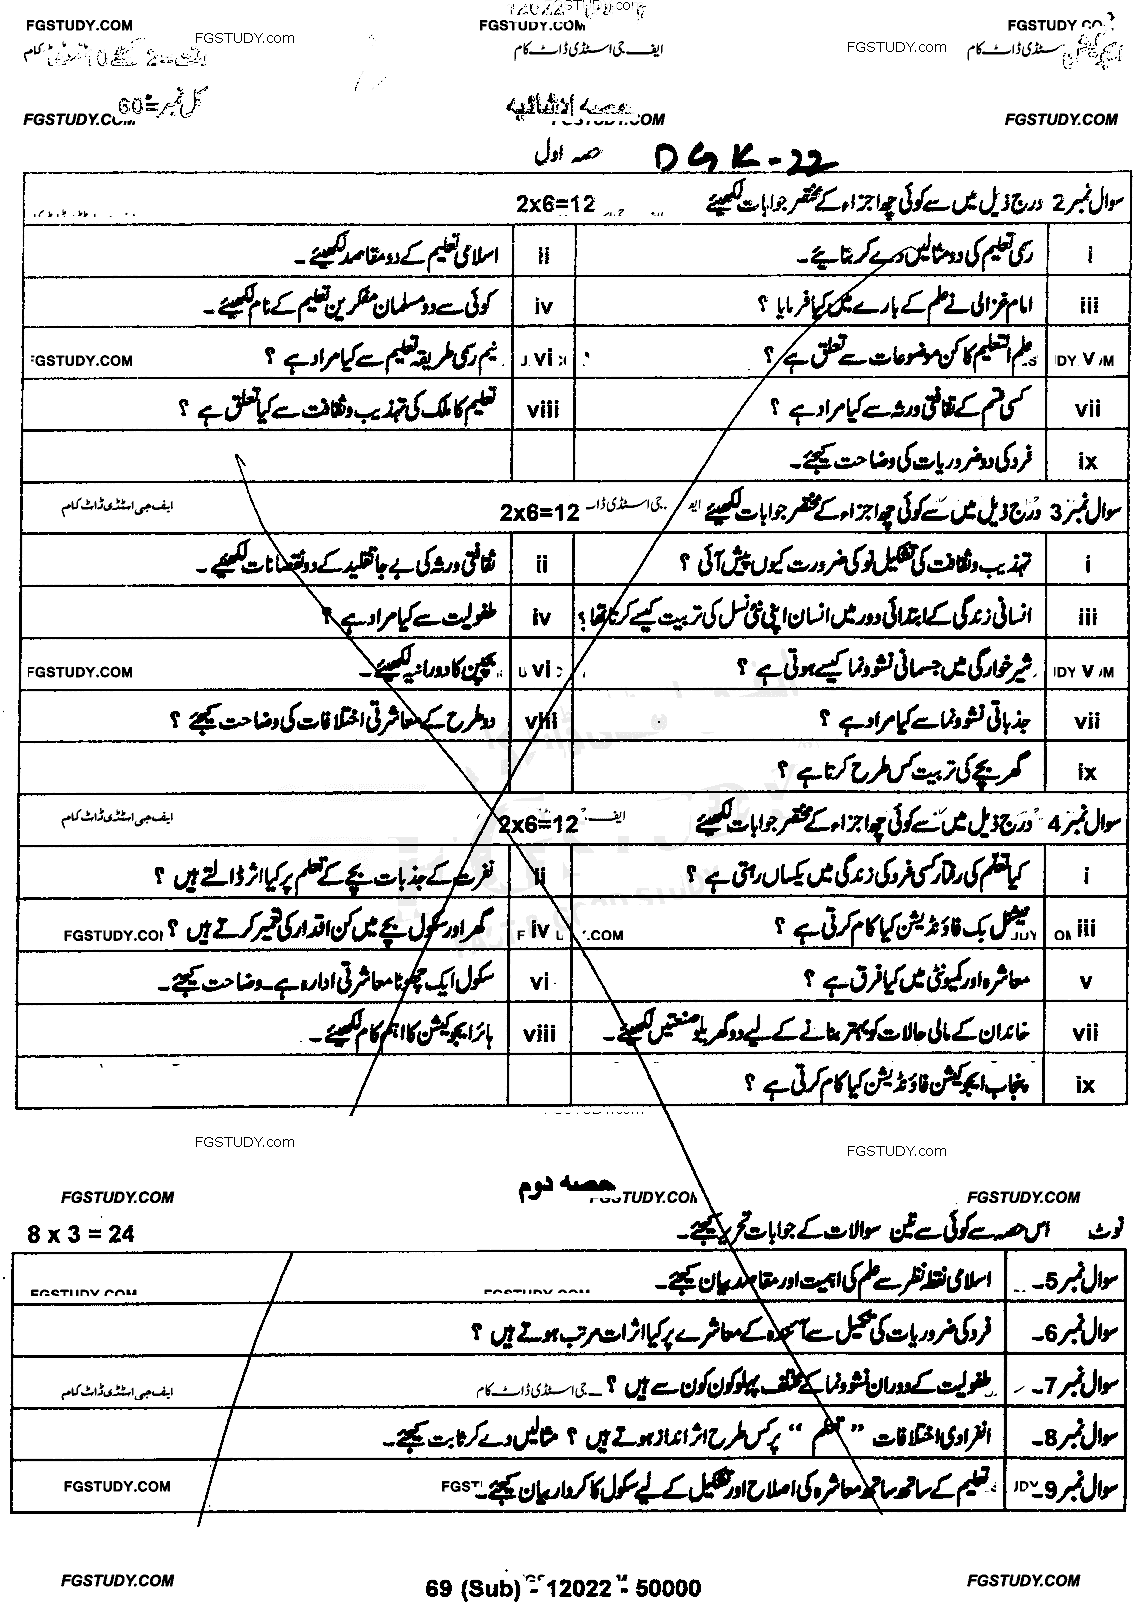 12022
FGSTUDY.COM FGSTUDY.com FGSTUDY.COM FGSTUDY.com FGSTUDY
ایف جی اسٹڈی ڈاٹ کام
کل نمبر = 60 حصہ انشائیہ
FGSTUDY.COM FGSTUDY.COM FGSTUDY.COM
حصہ اول DGK-22
سوال نمبر 2 درج ذیل میں سے کوئی چھ اجزاء کے مختصر جوابات لکھیئے 2x6=12
i رسمی تعلیم کی دو مثالیں دے کر بتایئے۔ ii اسلامی تعلیم کے دو مقاصد لکھیئے۔
iii امام غزالی نے علم کے بارے میں کیا فرمایا ؟ iv کوئی سے دو مسلمان مفکرین تعلیم کے نام لکھیئے۔
v علم التعلیم کا کن موضوعات سے تعلق ہے ؟ vi نیم رسمی طریقہ تعلیم سے کیا مراد ہے ؟ FGSTUDY.COM
vii کسی قسم کے ثقافتی ورثہ سے کیا مراد ہے ؟ viii تعلیم کا ملک کی تہذیب و ثقافت سے کیا تعلق ہے ؟
ix فرد کی دو ضروریات کی وضاحت کیجئے۔
سوال نمبر 3 درج ذیل میں سے کوئی چھ اجزاء کے مختصر جوابات لکھیئے 2x6=12 ایف جی اسٹڈی ڈاٹ کام
i تہذیب و ثقافت کی تشکیل نو کی ضرورت کیوں پیش آئی ؟ ii ثقافتی ورثہ کی بے جا تقلید کے دو نقصانات لکھیئے۔
iii انسانی زندگی کے ابتدائی دور میں انسان اپنی نئی نسل کی تربیت کیسے کرتا تھا ؟ iv طفولیت سے کیا مراد ہے ؟
v شیر خوارگی میں جسمانی نشوونما کیسے ہوتی ہے ؟ vi بچپن کا دورانیہ لکھیئے۔ FGSTUDY.COM
vii جذباتی نشوونما سے کیا مراد ہے ؟ viii دو طرح کے معاشرتی اختلافات کی وضاحت کیجئے ؟
ix گھر بچے کی تربیت کس طرح کرتا ہے ؟
سوال نمبر 4 درج ذیل میں سے کوئی چھ اجزاء کے مختصر جوابات لکھیئے 2x6=12 ایف جی اسٹڈی ڈاٹ کام
i کیا تعلم کی رفتار کسی فرد کی زندگی میں یکساں رہتی ہے ؟ ii نفرت کے جذبات بچے کے تعلم پر کیا اثر ڈالتے ہیں ؟
iii نیشنل بک فاؤنڈیشن کیا کام کرتی ہے ؟ iv گھر اور سکول بچے میں کن اقدار کی تعمیر کرتے ہیں ؟ FGSTUDY.COM
v معاشرہ اور کمیونٹی میں کیا فرق ہے ؟ vi سکول ایک چھوٹا معاشرتی ادارہ ہے۔ وضاحت کیجئے۔
vii خاندان کے مالی حالات کو بہتر بنانے کے لیے دو گھریلو صنعتیں لکھیئے۔ viii ہائر ایجوکیشن کا اہم کام لکھیئے۔
ix پنجاب ایجوکیشن فاؤنڈیشن کیا کام کرتی ہے ؟
FGSTUDY.com FGSTUDY.com
حصہ دوم
FGSTUDY.COM FGSTUDY.COM FGSTUDY.COM
نوٹ اس حصہ سے کوئی سے تین سوالات کے جوابات تحریر کیجئے۔ 8 x 3 = 24
سوال نمبر 5۔ اسلامی نقطہ نظر سے علم کی اہمیت اور مقاصد بیان کیجئے۔
سوال نمبر 6۔ فرد کی ضروریات کی تکمیل سے آئندہ کے معاشرے پر کیا اثرات مرتب ہوتے ہیں ؟
سوال نمبر 7۔ طفولیت کے دوران نشوونما کے مختلف پہلو کون کون سے ہیں ؟ جی اسٹڈی ڈاٹ کام ایف جی اسٹڈی ڈاٹ کام
سوال نمبر 8۔ انفرادی اختلافات "تعلم" پر کس طرح اثر انداز ہوتے ہیں ؟ مثالیں دے کر ثابت کیجئے۔
سوال نمبر 9۔ تعلیم کے ساتھ ساتھ معاشرہ کی اصلاح اور تشکیل کے لیے سکول کا کردار بیان کیجئے۔ FGSTUDY.COM
FGSTUDY.COM 69 (Sub) - 12022 - 50000 FGSTUDY.COM